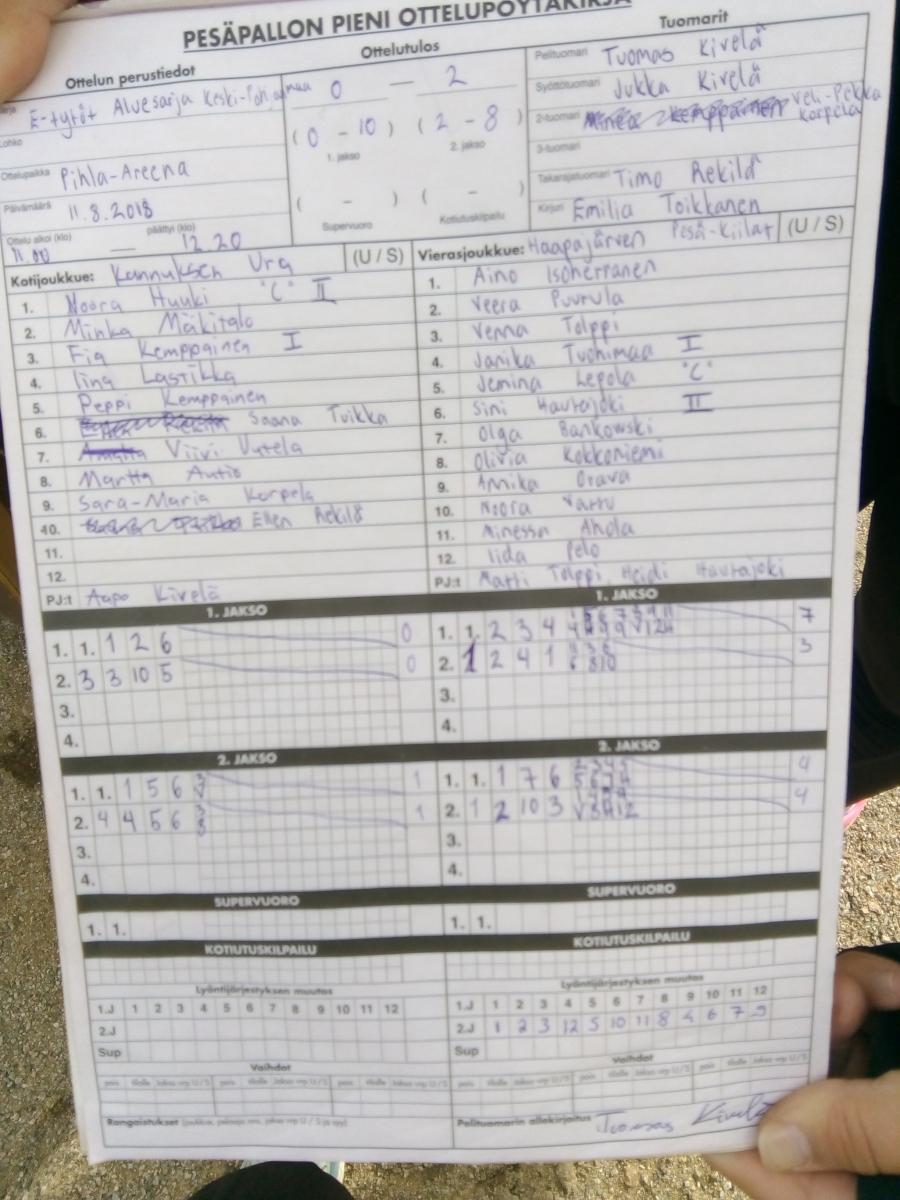 PESÄPALLON PIENI OTTELUPÖYTÄKIRJA
Ottelun perustiedot
Ottelutulos
Tuomarit
E-tytöt Aluesarja Keski-Pohjanmaa
Lohko
Ottelupaikka Pihla-Areena
Päivämäärä 11.8.2018
Ottelu alkoi (klo) päättyi (klo)
11.00 — 12.20
0 — 2
(0 - 10) (2 - 8)
1. jakso 2. jakso
( - ) ( - )
Supervuoro Kotiutuskilpailu
Pelituomari Tuomas Kivelä
Syöttötuomari Jukka Kivelä
2-tuomari Veli-Pekka Korpela
3-tuomari
Takarajatuomari Timo Rekilä
Kirjuri Emilia Toikkanen
Kotijoukkue: Kannuksen Ura (U / S)
1. Noora Huuki "C" II
2. Minka Mäkitalo
3. Fia Kemppainen I
4. Iina Lastikka
5. Peppi Kemppainen
6. Saana Tuikka
7. Viivi Uutela
8. Martta Autio
9. Sara-Maria Korpela
10. Ellen Rekilä
11.
12.
PJ:t Aapo Kivelä
Vierasjoukkue: Haapajärven Pesä-Kiilat (U / S)
1. Aino Isoherranen
2. Veera Puurula
3. Venna Tolppi
4. Janika Tuohimaa I
5. Jemina Lepola "C"
6. Sini Hautajoki II
7. Olga Bankowski
8. Olivia Kokkoniemi
9. Annika Orava
10. Noora
11. Minessa Ahola
12. Iida Pelo
PJ:t Matti Tolppi, Heidi Hautajoki
1. JAKSO
1. 1. 1 2 6 0
2. 3 3 10 5 0
3.
4.
1. JAKSO
1. 1. 2 3 4 7
2. 1 2 4 1 3
3.
4.
2. JAKSO
1. 1. 1 5 6 1
2. 4 4 5 6 1
3.
4.
2. JAKSO
1. 1. 1 7 6 4
2. 1 2 10 3 4
3.
4.
SUPERVUORO
1. 1.
SUPERVUORO
1. 1.
KOTIUTUSKILPAILU
KOTIUTUSKILPAILU
Lyöntijärjestyksen muutos
1.J 1 2 3 4 5 6 7 8 9 10 11 12
2.J
Sup
Lyöntijärjestyksen muutos
1.J 1 2 3 4 5 6 7 8 9 10 11 12
2.J 1 2 3 12 5 10 11 8 4 6 7 9
Sup
Vaihdot
pois tilalle Jakso vrp U / S pois tilalle Jakso vrp U / S pois tilalle Jakso vrp U / S
Vaihdot
pois tilalle Jakso vrp U / S pois tilalle Jakso vrp U / S pois tilalle Jakso vrp U / S
Rangaistukset
Pelituomarin allekirjoitus Tuomas Kivelä